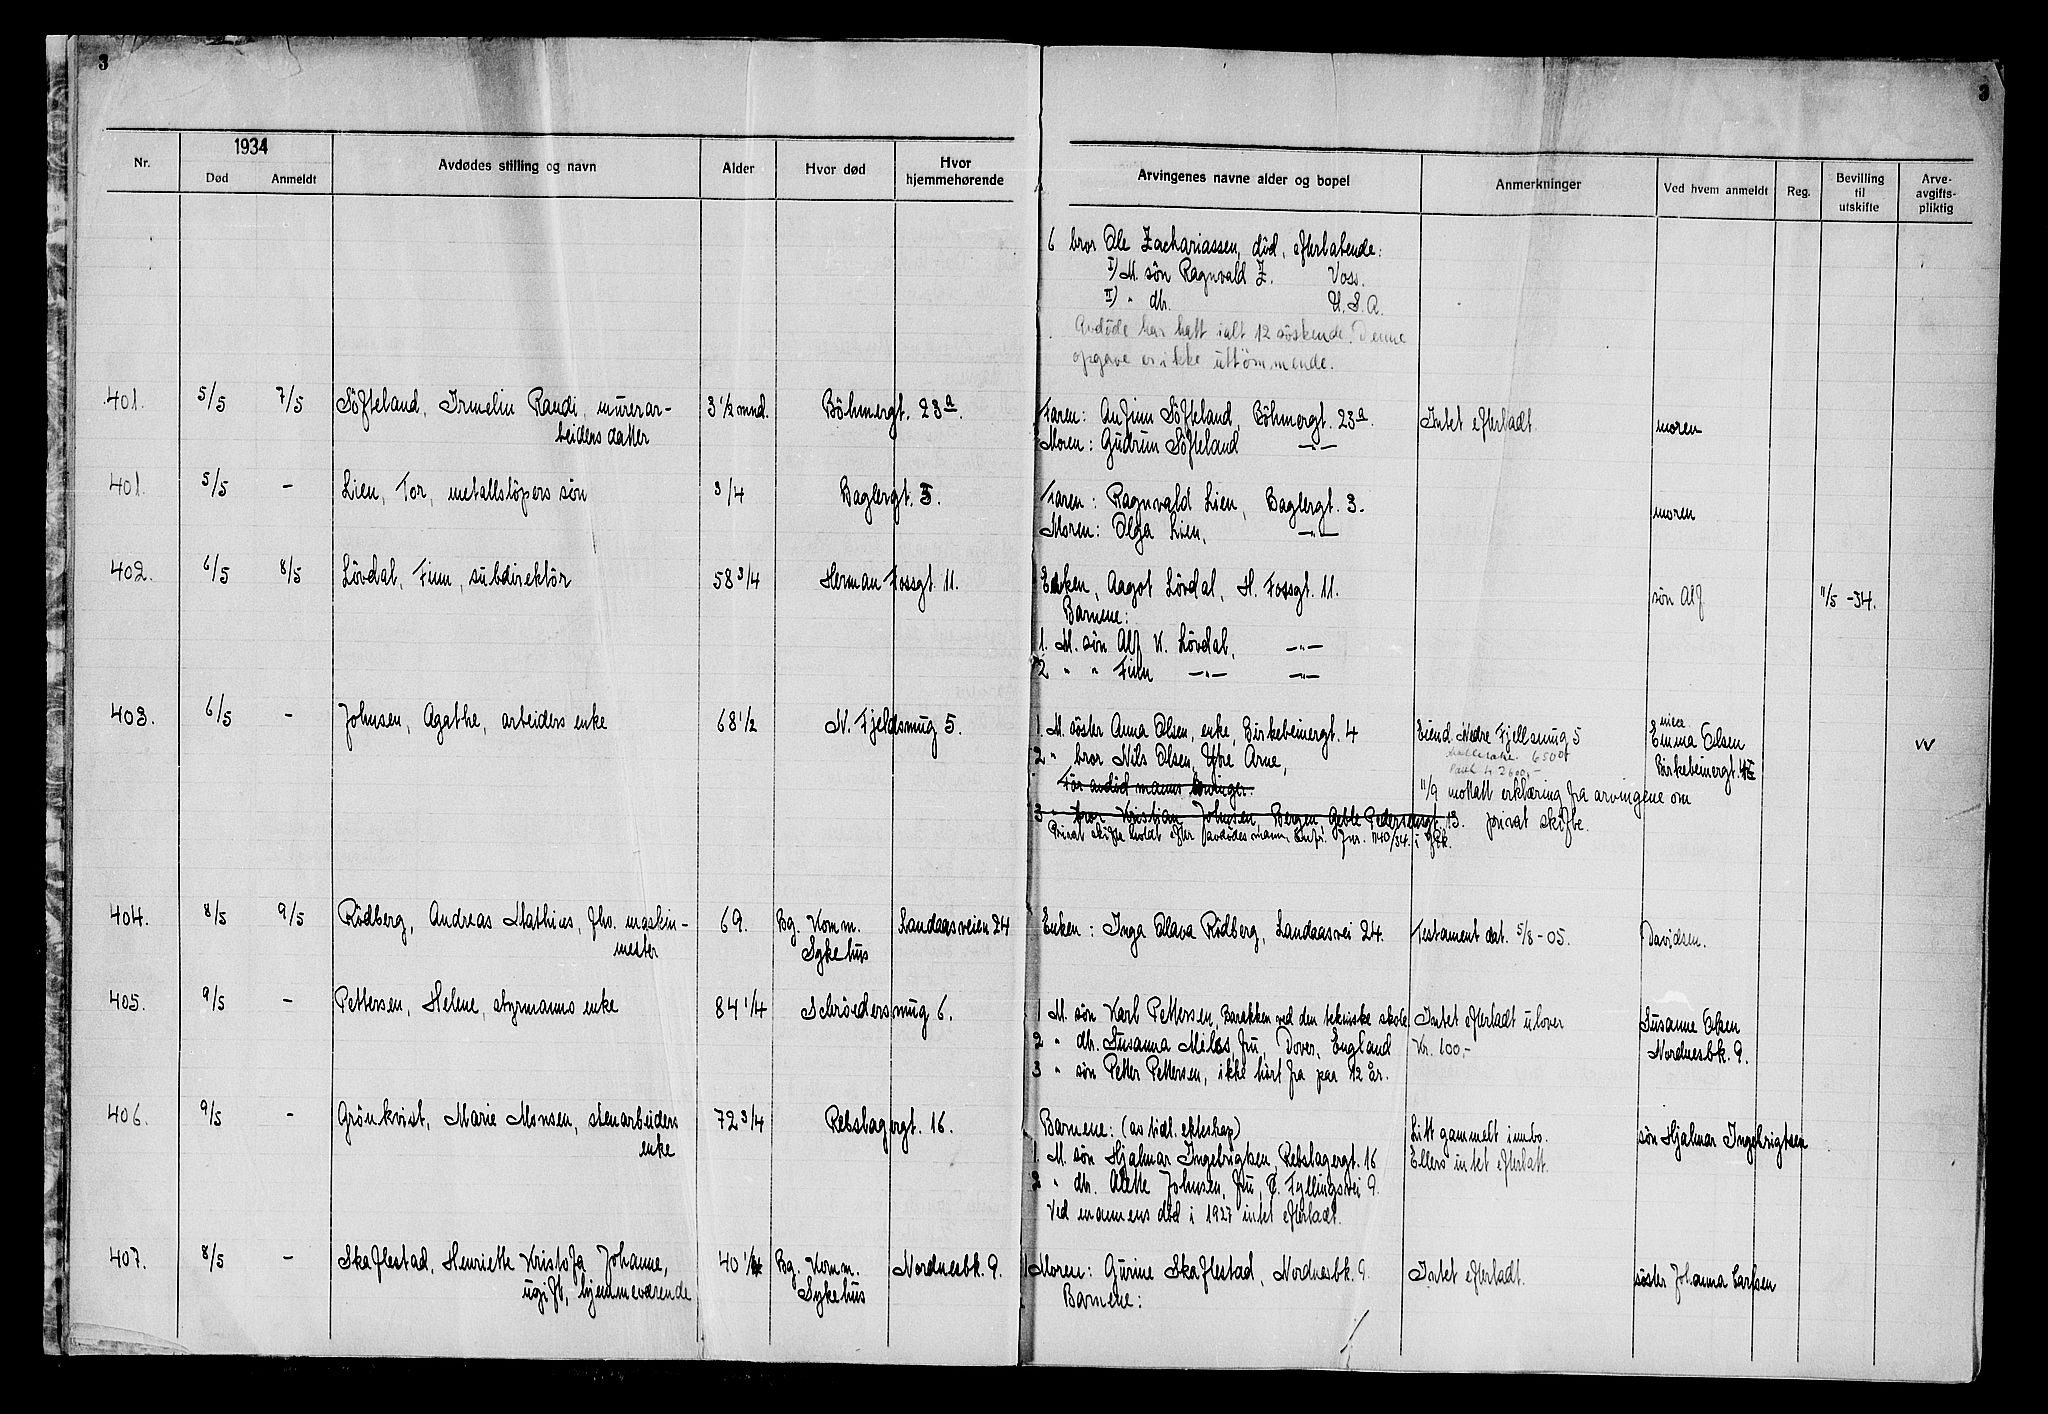 3
3
1934
Nr.
Død
Anmeldt
Avdødes stilling og navn
Alder
Hvor død
Hvor
hjemmehørende
Arvingenes navne alder og bopel
Anmerkninger
Ved hvem anmeldt
Reg.
Bevilling
til
utskifte
Arve-
avgifts-
pliktig
6 bror Ole Zachariassen, död, efterlatende:
I) M. sön Ragnvald Z. Voss.
II) " dtr. U.S.A.
Avdöde har hatt ialt 12 söskende. Denne
opgave er ikke uttömmende.
401. 5/5 7/5 Söfteland, Irmelin Randi, murerar- 3 1/2 mnd. Böhmergt. 23a.
beiders datter
Faren: Anfinn Söfteland, Böhmergt. 23a. Intet efterladt moren
Moren: Gudrun Söfteland —"—
401. 5/5 – Lien, Tor, metallstöpers sön 3/4 Baglergt. 3.
Faren: Ragnvald Lien, Baglergt. 3. moren
Moren: Olga Lien, —"—
402. 6/5 8/5 Lövdal, Finn, subdirektör 58 3/4 Herman Fossgt. 11.
Enken, Aagot Lövdal, H. Fossgt. 11. sön Alf 11/5 -34.
Barnene:
1. M. sön Alf K. Lövdal, —"—
2 " " Finn —"— —"—
403. 6/5 – Johnsen, Agathe, arbeiders enke 68 1/2 N. Fjeldsmug 5.
1. M. söster Anna Olsen, enke, Birkebeinergt. 4 Eiend Nedre Fjellsmug 5 niece Emma Olsen
2 " bror Nils Olsen, Ytre Arne, 6500 Birkebeinergt. 4 VV
For avdöd manns arvinger. 2600,-
11/9 mottatt erklæring fra arvingene om
3 " bror Kristian Johnsen, Bergen, Geble Pedersensgt. 13. privat skifte.
Privat skifte holdt efter avdödes mann, Jnr. 1140/34. i
404. 8/5 9/5 Rödberg, Andreas Mathias, fhv. maskin- 69. Bg. Komm. Landaasveien 24
mester Sykehus
Enken: Inga Olava Rödberg, Landaasvei 24. Testament dat. 5/8-05. Davidsen.
405. 9/5 – Pettersen, Helene, styrmanns enke 84 1/4 Schröedersmug 6.
1 M. sön Karl Pettersen, Barakken ved den tekniske skole Intet efterladt utover Susanne Olsen
2 " dtr. Susanna Miles, fru, Dover, England Kr. 100,- Nordnesbk. 9.
3 " sön Petter Pettersen, ikke hört fra paa 12 år.
406. 9/5 – Grönkvist, Marie Monsen, stenarbeiders 72 3/4 Rebslagergt. 16.
enke
Barnene: (av tidl. ekteskap) Litt gammelt innbo. sön Hjalmar Ingebrigtsen
1. M. sön Hjalmar Ingebrigtsen, Rebslagergt. 16 Ellers intet efterlatt.
2 " dtr. Alette Johnsen, fru, C. Fyllingsvei 9.
Ved mannens död i 1927 intet efterladt.
407. 8/5 – Skaflestad, Henriette Kristofa Johanne, 40 Bg. Komm. Nordnesbk. 9.
ugift, hjemmeværende Sykehus
Moren: Gurine Skaflestad, Nordnesbk. 9 Intet efterladt. söster Johanna Carlsen
Barnene: